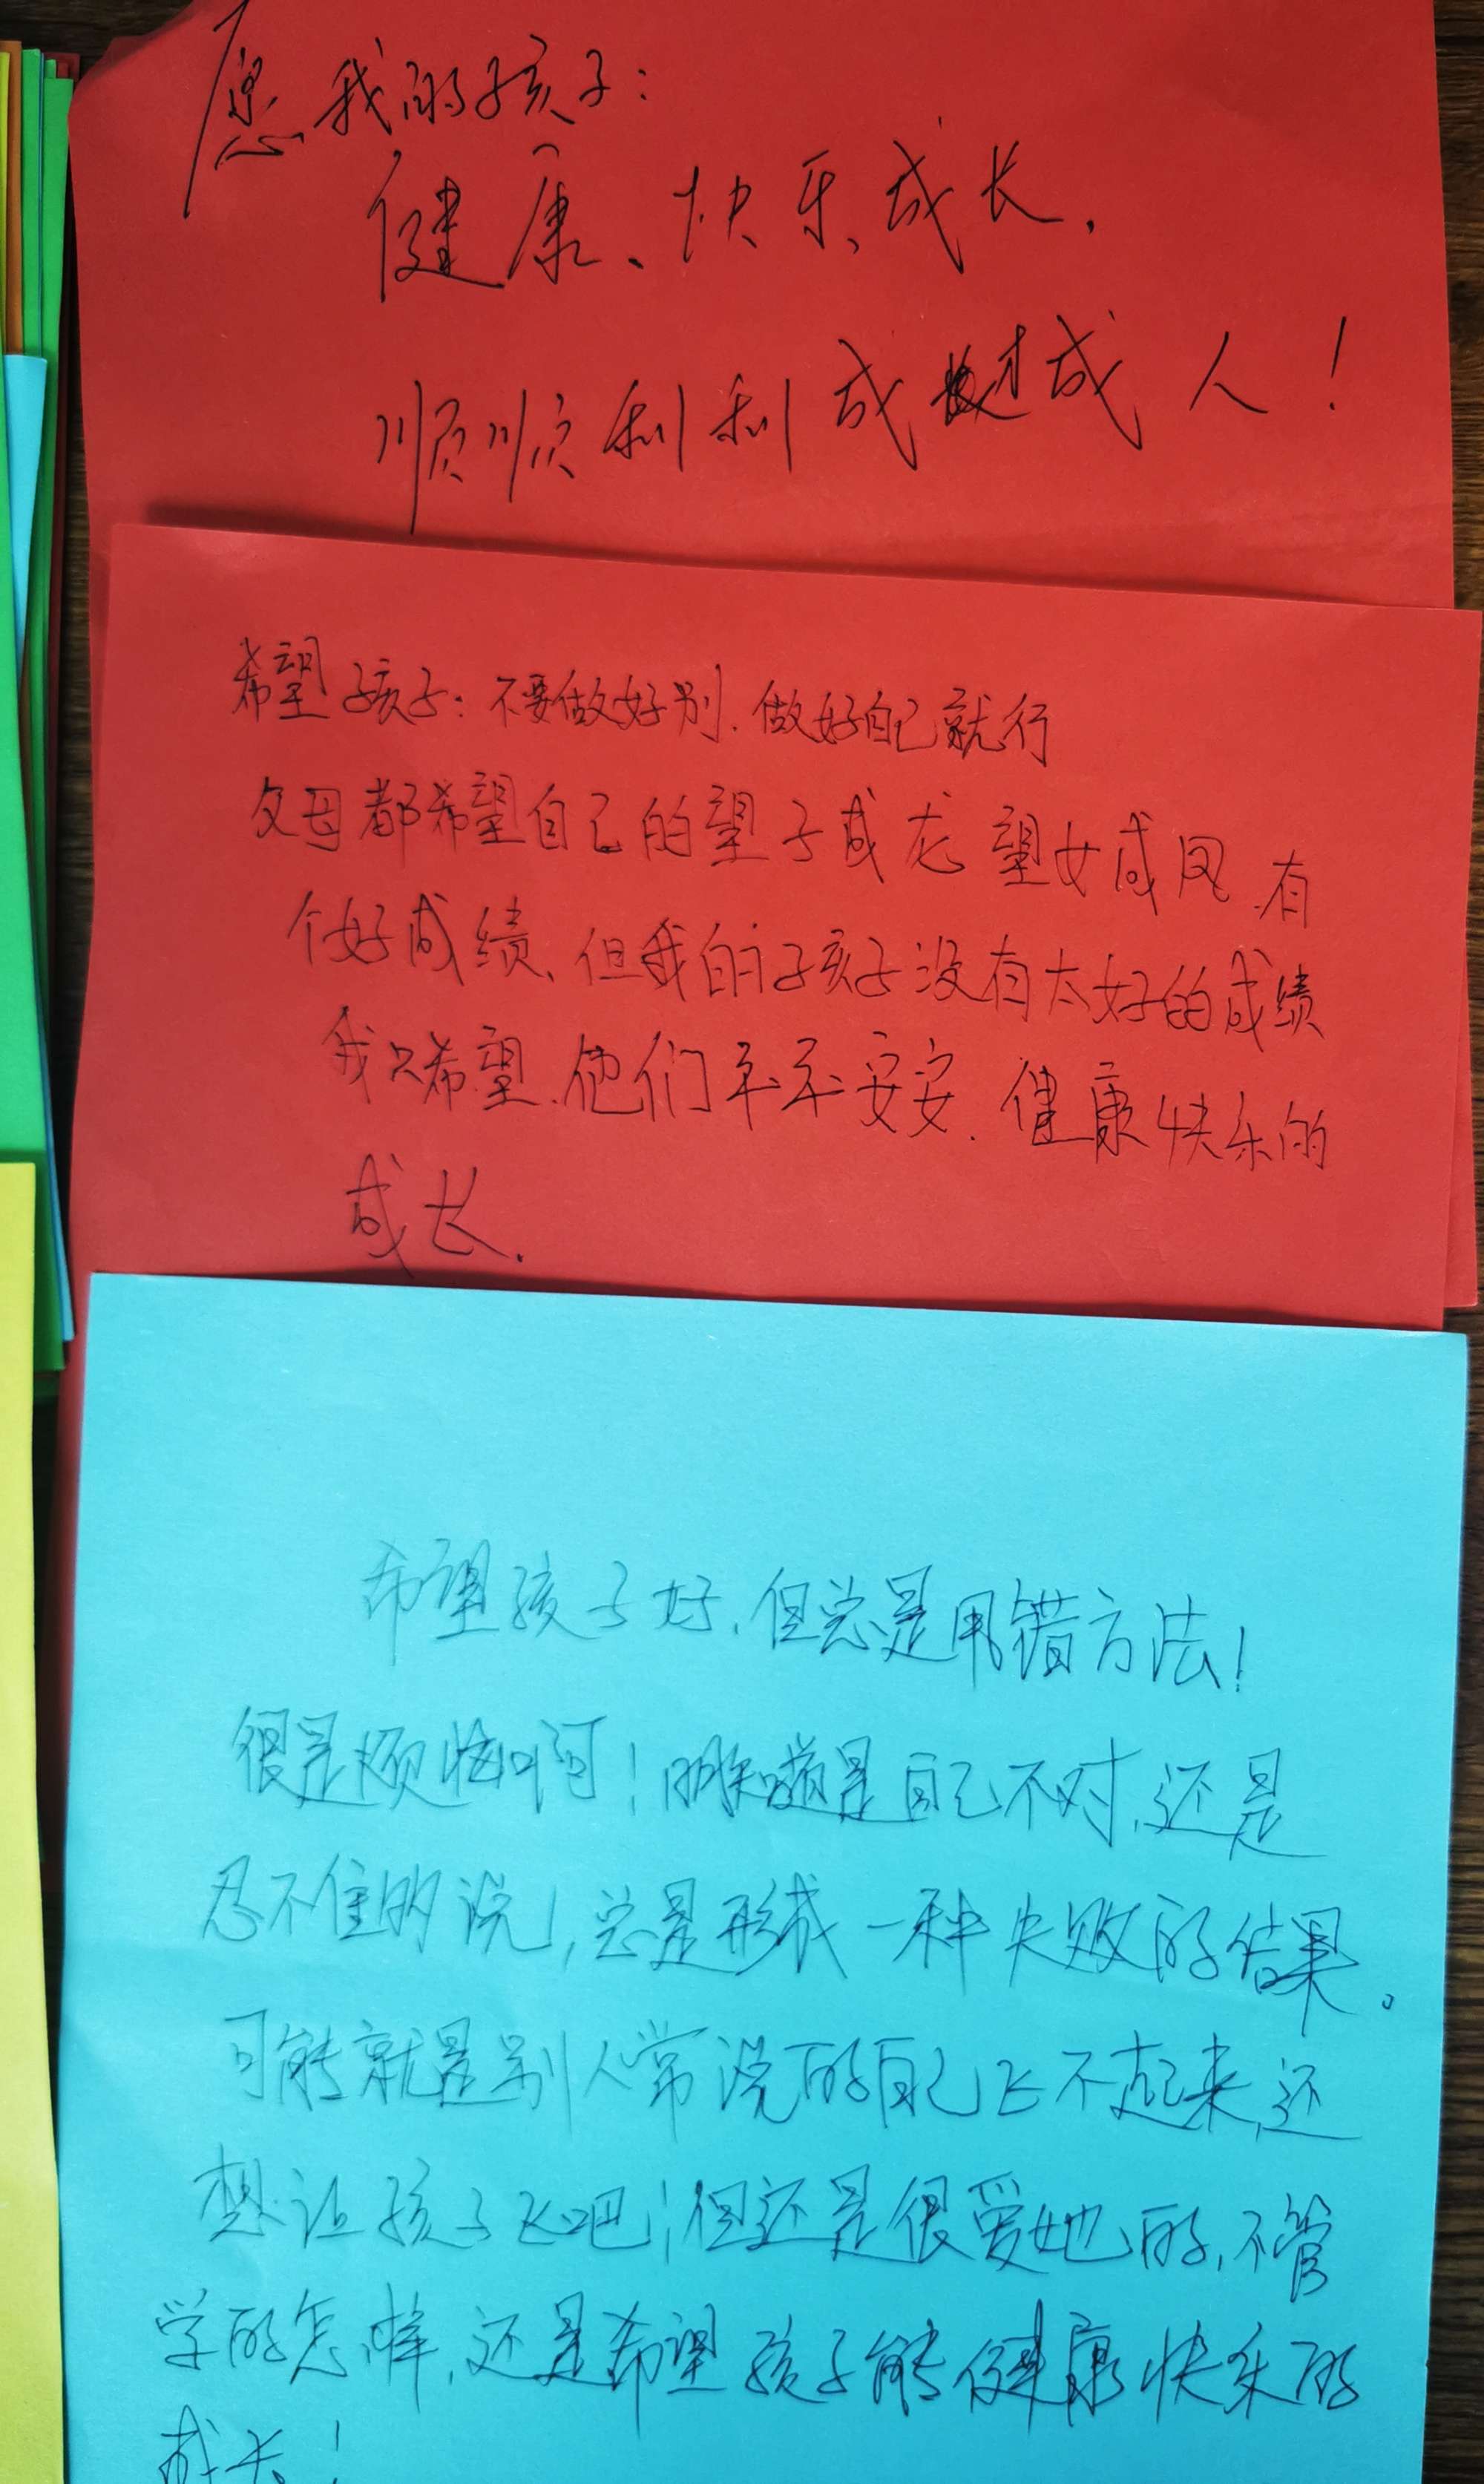 愿我的孩子：
健康、快乐、成长.
顺顺利利成才成人！
希望孩子：不要做好别.做好自己就行
父母都希望自己的望子成龙望女成凤.有
个好成绩、但我的孩子没有太好的成绩
我只希望.他们平平安安.健康快乐的
成长.
希望孩子好,但总是用错方法！
很是烦恼啊！明知道是自己不对,还是
忍不住的说！,总是形成一种失败的结果。
可能就是别人常说的自己飞不起来,还
想让孩子飞吧！但还是很爱她的,不管
学的怎样,还是希望孩子能健康快乐的
成长！